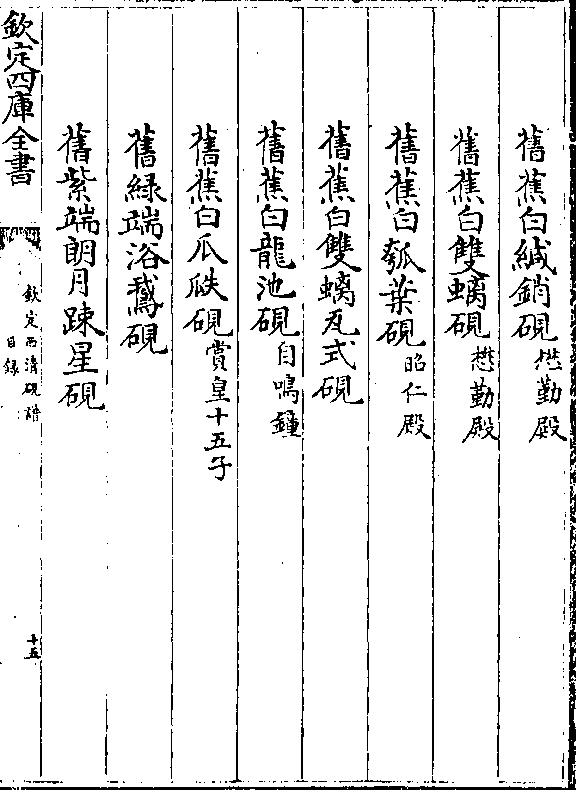 舊蕉白緘鎖硯懋勤殿
舊蕉白雙螭硯懋勤殿
舊蕉白瓠葉硯昭仁殿
舊蕉白雙螭瓦式硯
舊蕉白龍池硯自鳴鐘
舊蕉白瓜瓞硯賞皇十五子
舊綠端浴鵝硯
舊紫端朗月踈星硯
欽定四庫全書
欽定西清硯譜
目錄
十五